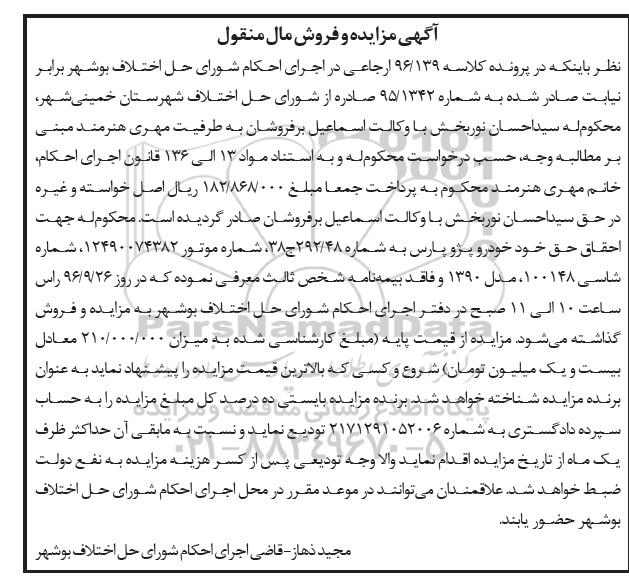 آگهی مزایده و فروش مال منقول
نظر باینکه در پرونده کلاسه ۹۶/۱۳۹ ارجاعی در اجرای احکام شورای حل اختلاف بوشهر برابر
نیابت صادر شده به شماره ۹۵/۱۳۴۲ صادره از شورای حل اختلاف شهرستان خمینی‌شهر،
محکوم‌له سیداحسان نوربخش با وکالت اسماعیل برفروشان به طرفیت مهری هنرمند مبنی
بر مطالبه وجه، حسب درخواست محکوم‌له و به استناد مواد ۱۳ الی ۱۳۶ قانون اجرای احکام،
خانم مهری هنرمند محکوم به پرداخت جمعا مبلغ ۱۸۲/۸۶۸/۰۰۰ ریال اصل خواسته و غیره
در حق سیداحسان نوربخش با وکالت اسماعیل برفروشان صادر گردیده است. محکوم‌له جهت
احقاق حق خود خودرو پژو پارس به شماره ۲۹۲/۴۸ج۳۸، شماره موتور ۱۲۴۹۰۰۷۴۳۸۲، شماره
شاسی ۱۰۰۱۴۸، مدل ۱۳۹۰ و فاقد بیمه‌نامه شخص ثالث معرفی نموده که در روز ۹۶/۹/۲۶ راس
ساعت ۱۰ الی ۱۱ صبح در دفتر اجرای احکام شورای حل اختلاف بوشهر به مزایده و فروش
گذاشته می‌شود. مزایده از قیمت پایه (مبلغ کارشناسی شده به میزان ۲۱۰/۰۰۰/۰۰۰ معادل
بیست و یک میلیون تومان) شروع و کسی که بالاترین قیمت مزایده را پیشنهاد نماید به عنوان
برنده مزایده شناخته خواهد شد. برنده مزایده بایستی ده درصد کل مبلغ مزایده را به حساب
سپرده دادگستری به شماره ۲۱۷۱۲۹۱۰۵۲۰۰۶ تودیع نماید و نسبت به مابقی آن حداکثر ظرف
یک ماه از تاریخ مزایده اقدام نماید والا وجه تودیعی پس از کسر هزینه مزایده به نفع دولت
ضبط خواهد شد. علاقمندان می‌توانند در موعد مقرر در محل اجرای احکام شورای حل اختلاف
بوشهر حضور یابند.
مجید ذهاز-قاضی اجرای احکام شورای حل اختلاف بوشهر
ParsNamadData
پایگاه اطلاع رسانی مناقصه و مزایده
۰۲۱-۸۸۳۴۹۶۷۰-۵